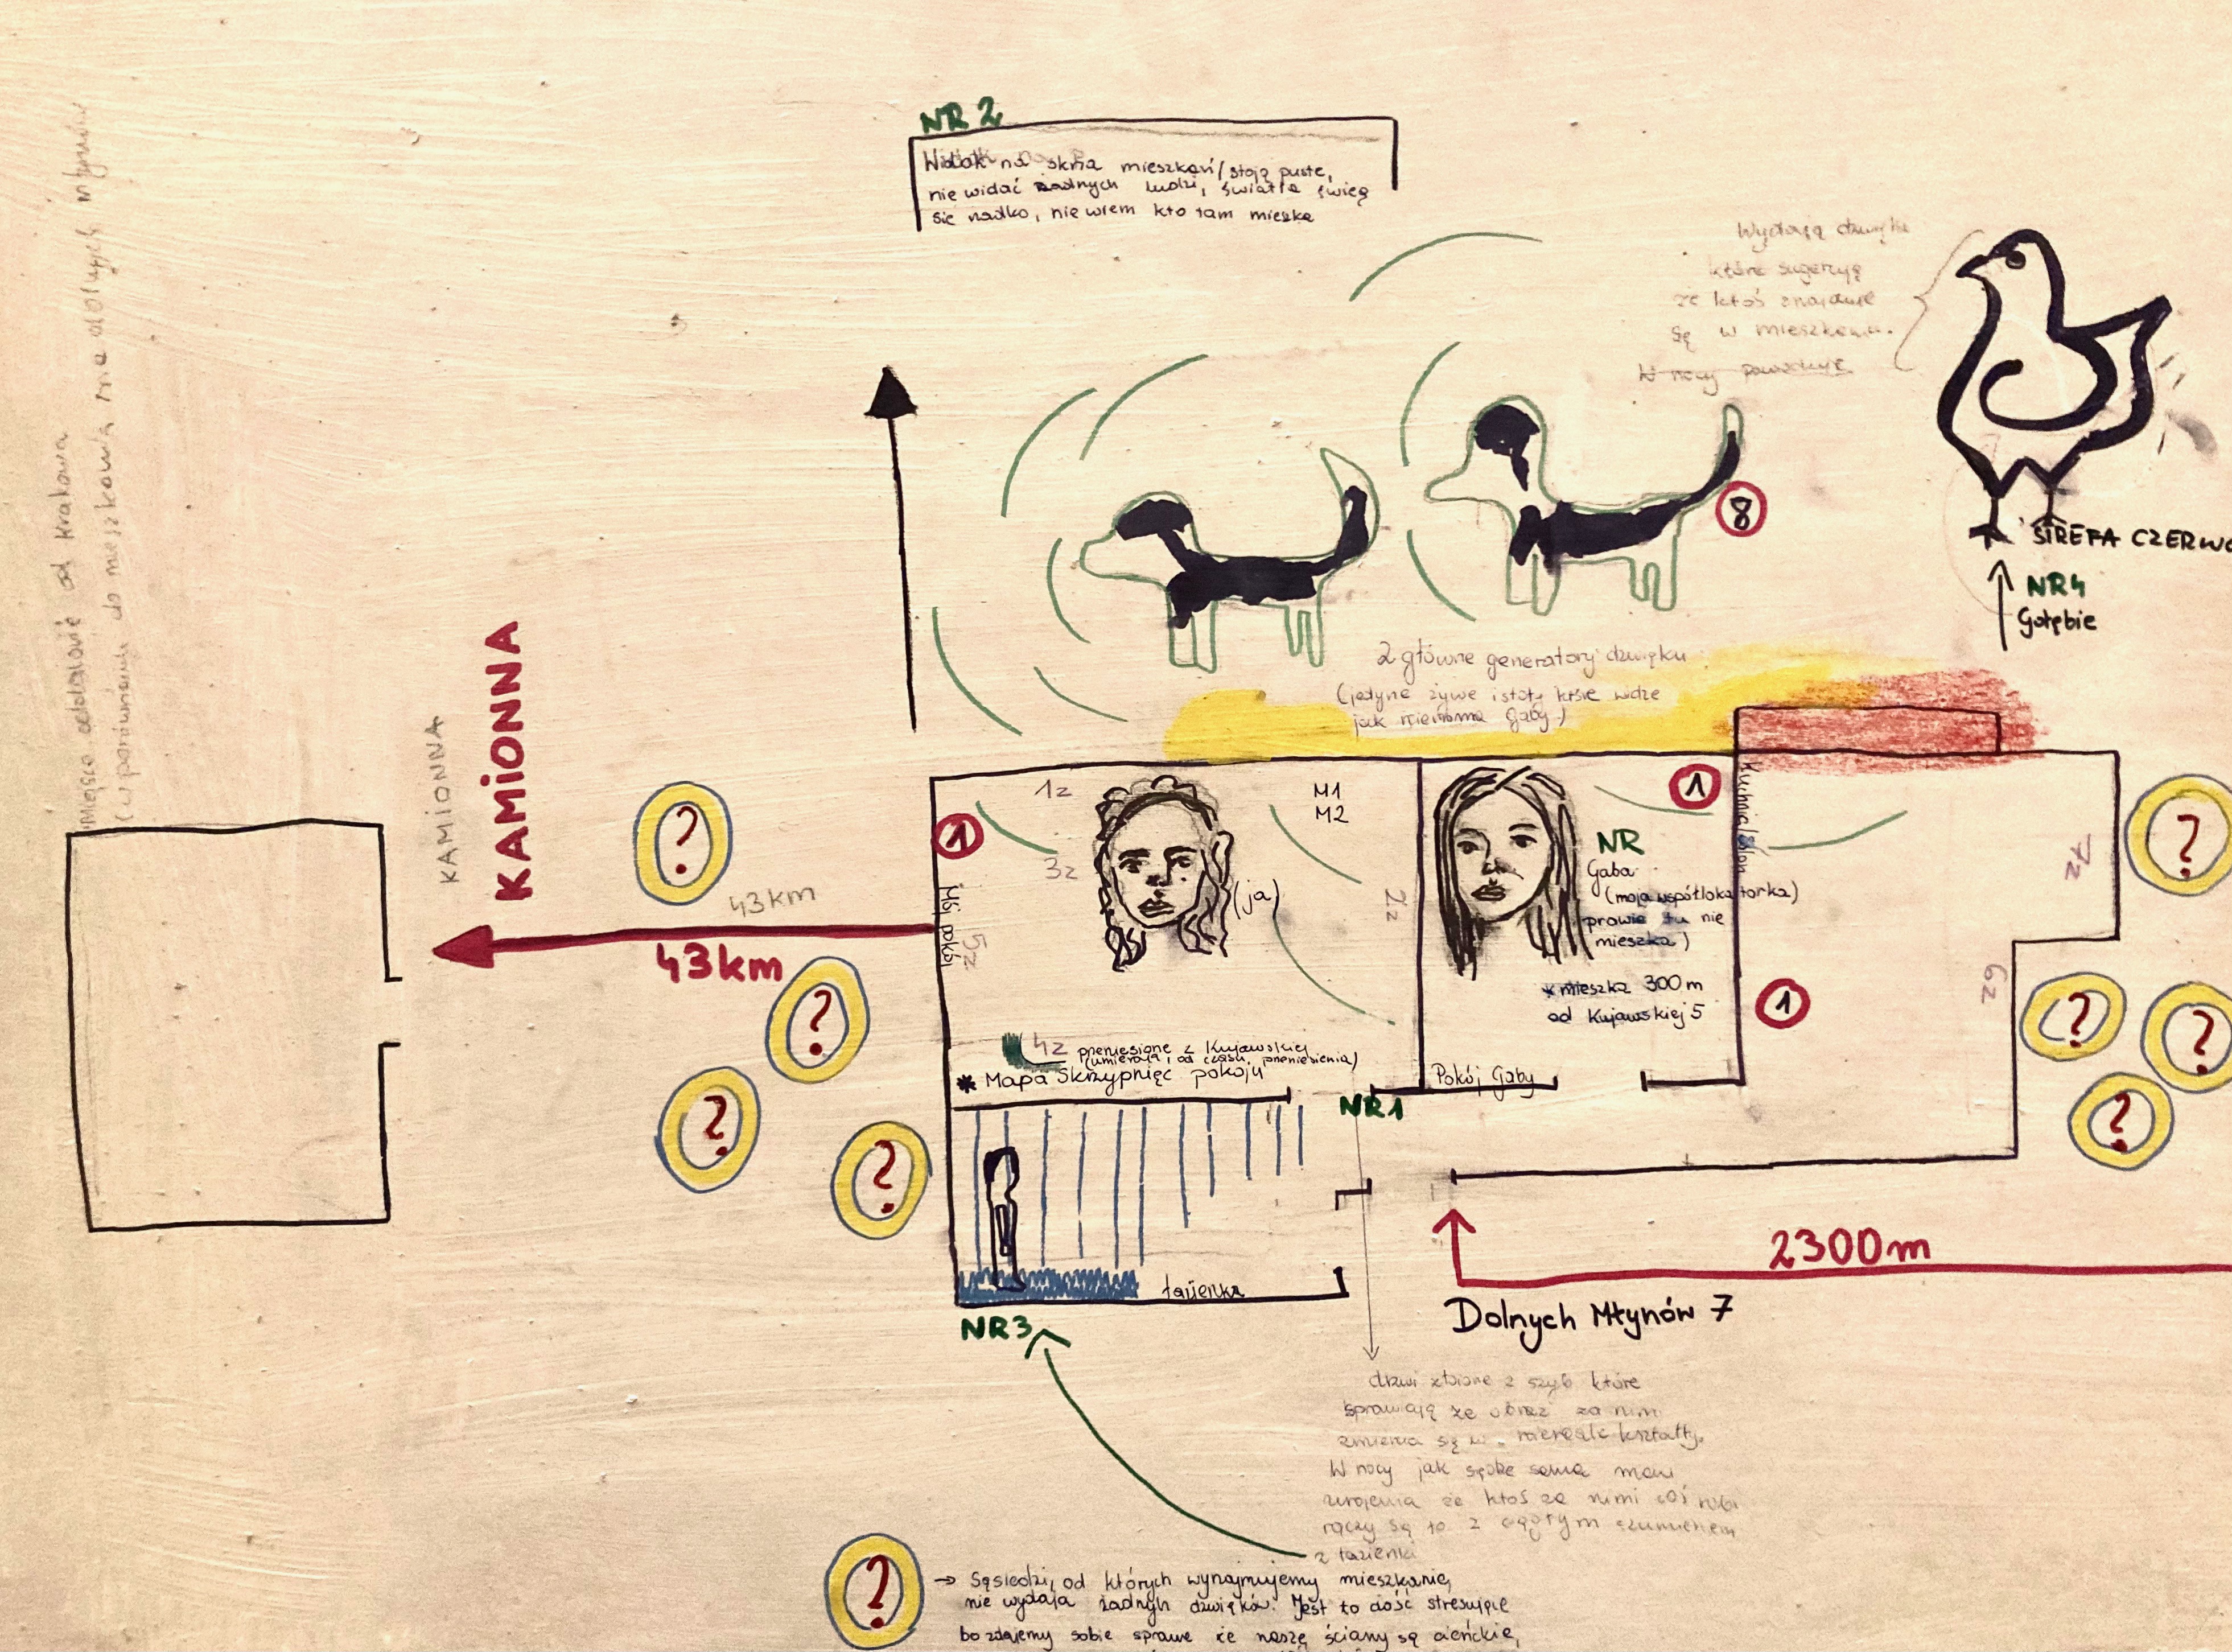 NR 2
Widok na okna mieszkań/stoją puste,
nie widać żadnych ludzi, światła świecą
się rzadko, nie wiem kto tam mieszka
Wydają dzwięki
które sugerują
że ktoś znajduje
się w mieszkaniu.
W nocy
STREFA CZERWO
NR4
Gołębie
8
2 główne generatory dzwięku
(jedyne żywe istoty które widzę
jak nie ma Gaby)
miejsce oddalone od Krakowa
(w porównaniu do mieszkowia nie
KAMIONNA
KAMIONNA
43km
43km
?
?
?
?
1
1z
3z
5z
2z
M1
M2
(ja)
Mój pokój
4z przeniesione z Kujawskiej
(umierają od czasu przeniesienia)
* Mapa skrzypnięć pokoju
1
NR
Gaba
(moja współlokatorka)
prawie tu nie
mieszka)
*mieszka 300m
od Kujawskiej 5
Pokój Gaby
Kuchnia/Salon
7z
6z
1
?
?
?
?
NR1
łazienka
NR3
2300m
Dolnych Młynów 7
drzwi zbione z szyb które
sprawiają że obraz za nim
zmienia się w nierealne kształty.
W nocy jak siedzę sama mam
urojenia że ktoś za nimi coś robi
łączy się to z ciągłym szumieniem
z łazienki
?
→ Sąsiedzi, od których wynajmujemy mieszkanie,
nie wydają żadnych dzwięków. Jest to dość stresujące
bo zdajemy sobie sprawe że nasze ściany są cienkie,